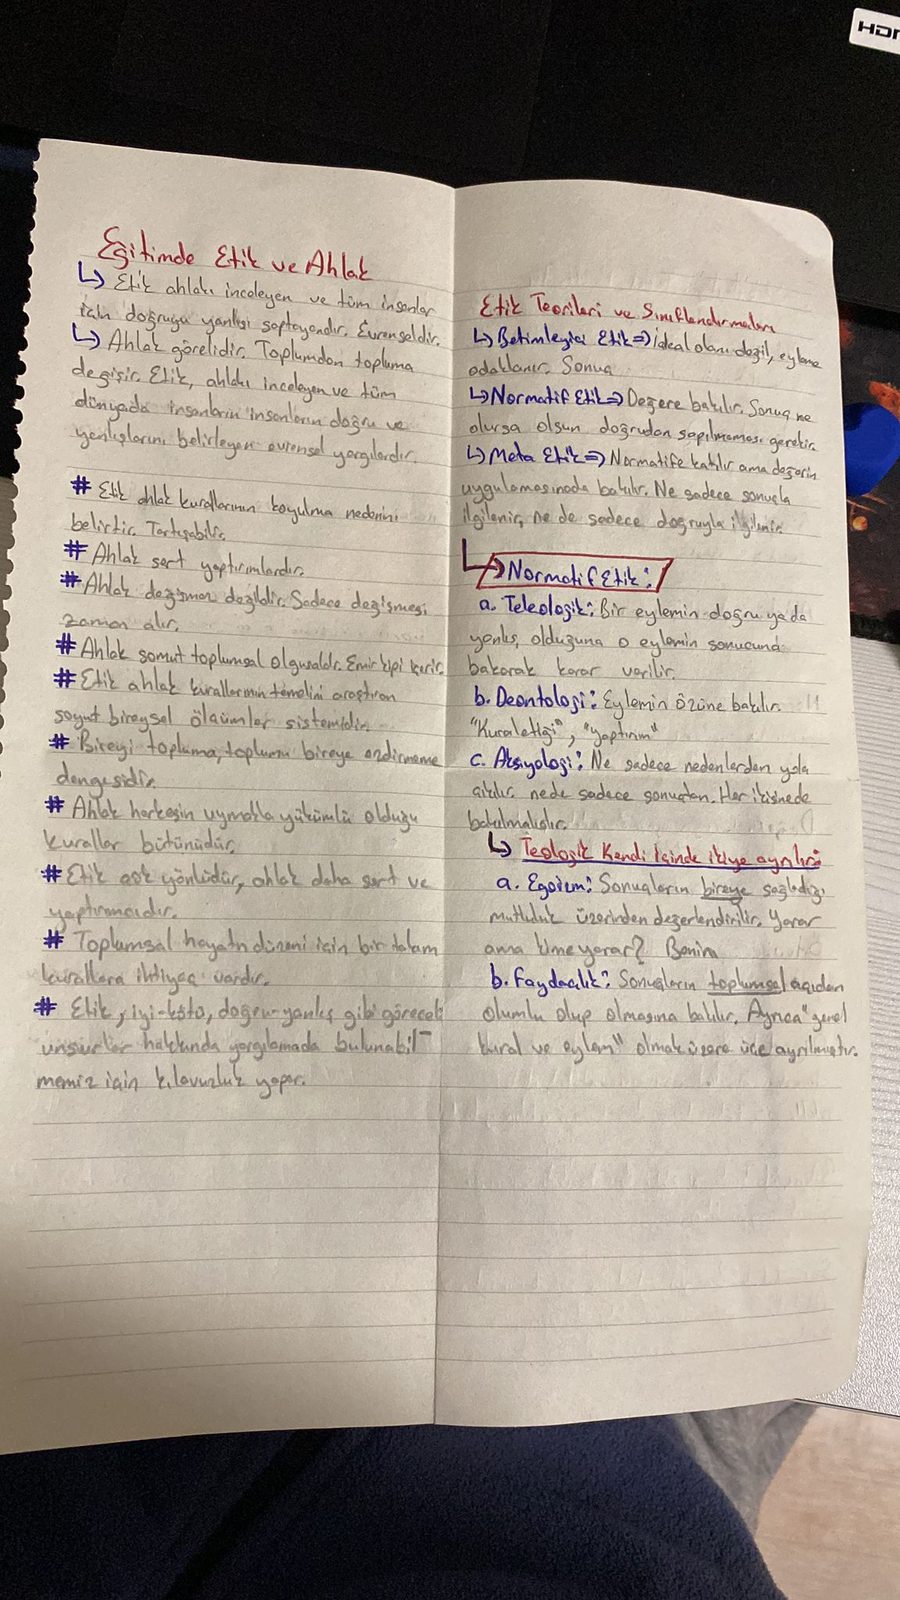 HDM
Eğitimde Etik ve Ahlak
↳ Etik ahlakı inceleyen ve tüm insanlar
için doğruyu yanlışı saptayandır. Evrenseldir.
↳ Ahlak görelidir. Toplumdan topluma
değişir. Etik, ahlakı inceleyen ve tüm
dünyada insanların insanların doğru ve
yanlışlarını belirleyen evrensel yargılardır.
# Etik ahlak kurallarının koyulma nedenini
belirtir. Tartışabilir.
# Ahlak sert yaptırımlardır.
# Ahlak değişmez değildir. Sadece değişmesi
zaman alır.
# Ahlak somut toplumsal olgusaldır. Emir kipi içerir.
# Etik ahlak kurallarının temelini araştıran
soyut bireysel ölçümler sistemidir.
# Bireyi topluma, toplumu bireye ezdirmeme
dengesidir.
# Ahlak herkesin uymakla yükümlü olduğu
kurallar bütünüdür.
# Etik çok yönlüdür, ahlak daha sert ve
yaptırımcıdır.
# Toplumsal hayatın düzeni için bir takım
kurallara ihtiyaç vardır.
# Etik, iyi-kötü, doğru-yanlış gibi göreceli
unsurlar hakkında yargılamada bulunabil-
memiz için kılavuzluk yapar.
Etik Teorileri ve Sınıflandırmaları
↳ Betimleyici Etik ⇒ İdeal olanı değil, eyleme
odaklanır. Sonuç
↳ Normatif Etik ⇒ Değere bakılır. Sonuç ne
olursa olsun doğrudan sapılmaması gerekir.
↳ Meta Etik ⇒ Normatife katılır ama değerin
uygulamasınada bakılır. Ne sadece sonuçla
ilgilenir, ne de sadece doğruyla ilgilenir.
↳ Normatif Etik:
a. Teleolojik: Bir eylemin doğru ya da
yanlış, olduğuna o eylemin sonucuna
bakarak karar verilir.
b. Deontoloji: Eylemin özüne bakılır.
"Kuraletiği", "yaptırım"
c. Aksiyoloji: Ne sadece nedenlerden yola
çıkılır, nede sadece sonuçtan. Her ikisinede
bakılmalıdır.
↳ Teolojik Kendi İçinde ikiye ayrılır:
a. Egoizm: Sonuçların bireye sağladığı
mutluluk üzerinden değerlendirilir. Yarar
ama kime yarar? Benim
b. Faydacılık: Sonuçların toplumsal açıdan
olumlu olup olmasına bakılır. Ayrıca "genel
kural ve eylem" olmak üzere üçe ayrılmıştır.